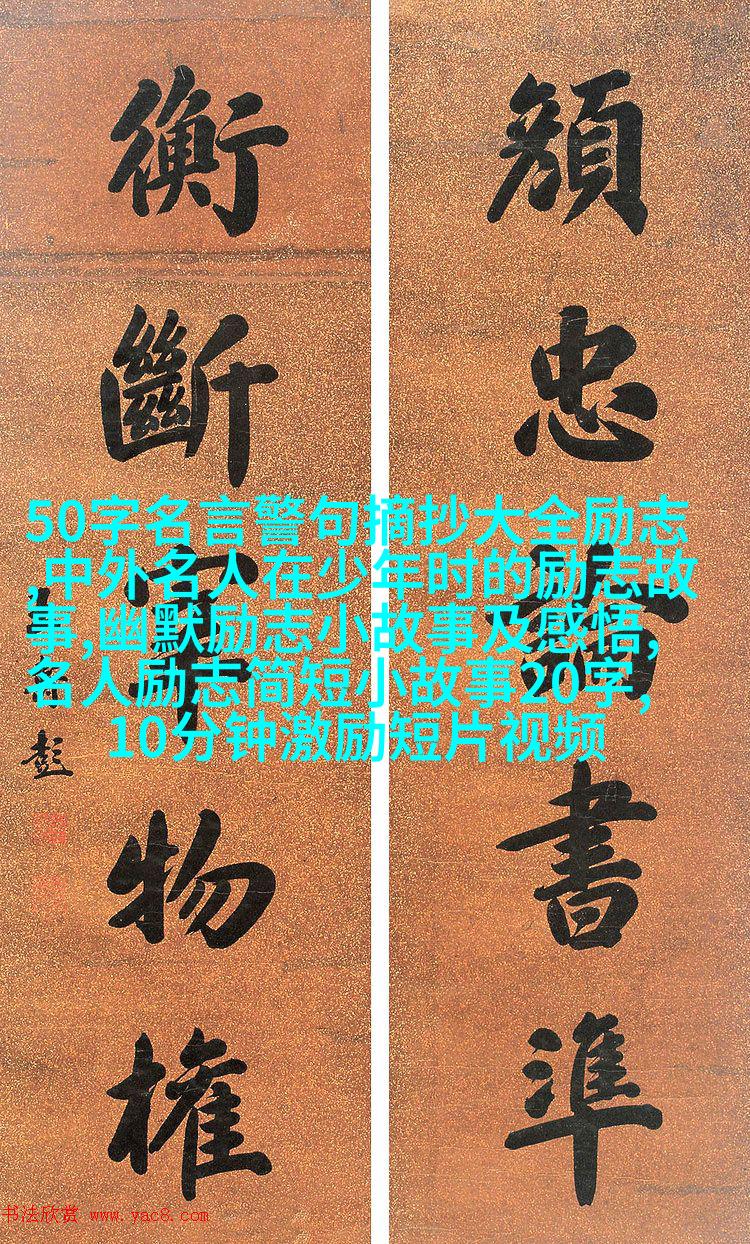 顏忠書準
衡斷物權
彭
50字名言警句摘抄大全励志
,中外名人在少年时的励志故
事,幽默励志小故事及感悟,
名人励志简短小故事20字,
10分钟激励短片视频
书法欣赏 www.yac8.com